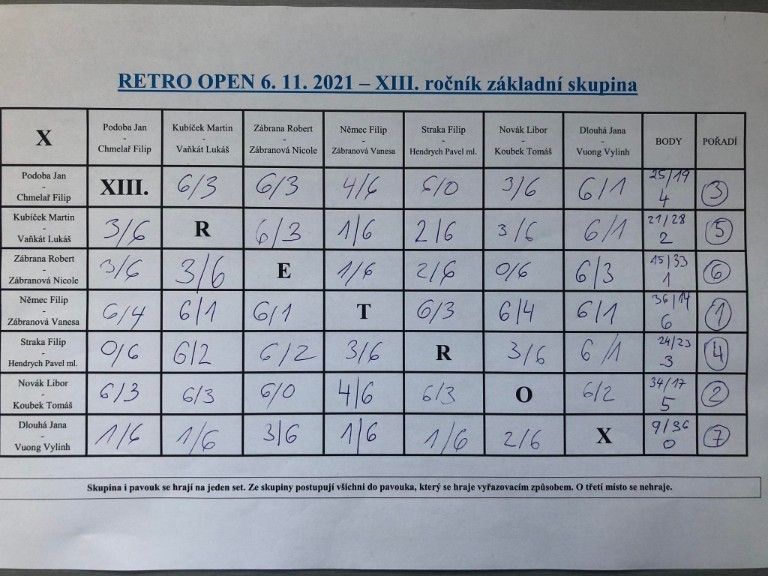 RETRO OPEN 6. 11. 2021 – XIII. ročník základní skupina
X
Podoba Jan
-
Chmelař Filip
Kubíček Martin
-
Vaňkát Lukáš
Zábrana Robert
-
Zábranová Nicole
Němec Filip
-
Zábranová Vanesa
Straka Filip
-
Hendrych Pavel ml.
Novák Libor
-
Koubek Tomáš
Dlouhá Jana
-
Vuong Vylinh
BODY
POŘADÍ
Podoba Jan
-
Chmelař Filip
XIII. 6/3 6/3 4/6 6/0 3/6 6/1
25/19
4
3
Kubíček Martin
-
Vaňkát Lukáš
3/6 R 6/3 1/6 2/6 3/6 6/1
21/28
2
5
Zábrana Robert
-
Zábranová Nicole
3/6 3/6 E 1/6 2/6 0/6 6/3
15/33
1
6
Němec Filip
-
Zábranová Vanesa
6/4 6/1 6/1 T 6/3 6/4 6/1
36/14
6
1
Straka Filip
-
Hendrych Pavel ml.
0/6 6/2 6/2 3/6 R 3/6 6/1
24/23
3
4
Novák Libor
-
Koubek Tomáš
6/3 6/3 6/0 4/6 6/3 O 6/2
34/17
5
2
Dlouhá Jana
-
Vuong Vylinh
1/6 1/6 3/6 1/6 1/6 2/6 X
9/36
0
7
Skupina i pavouk se hrají na jeden set. Ze skupiny postupují všichni do pavouka, který se hraje vyřazovacím způsobem. O třetí místo se nehraje.